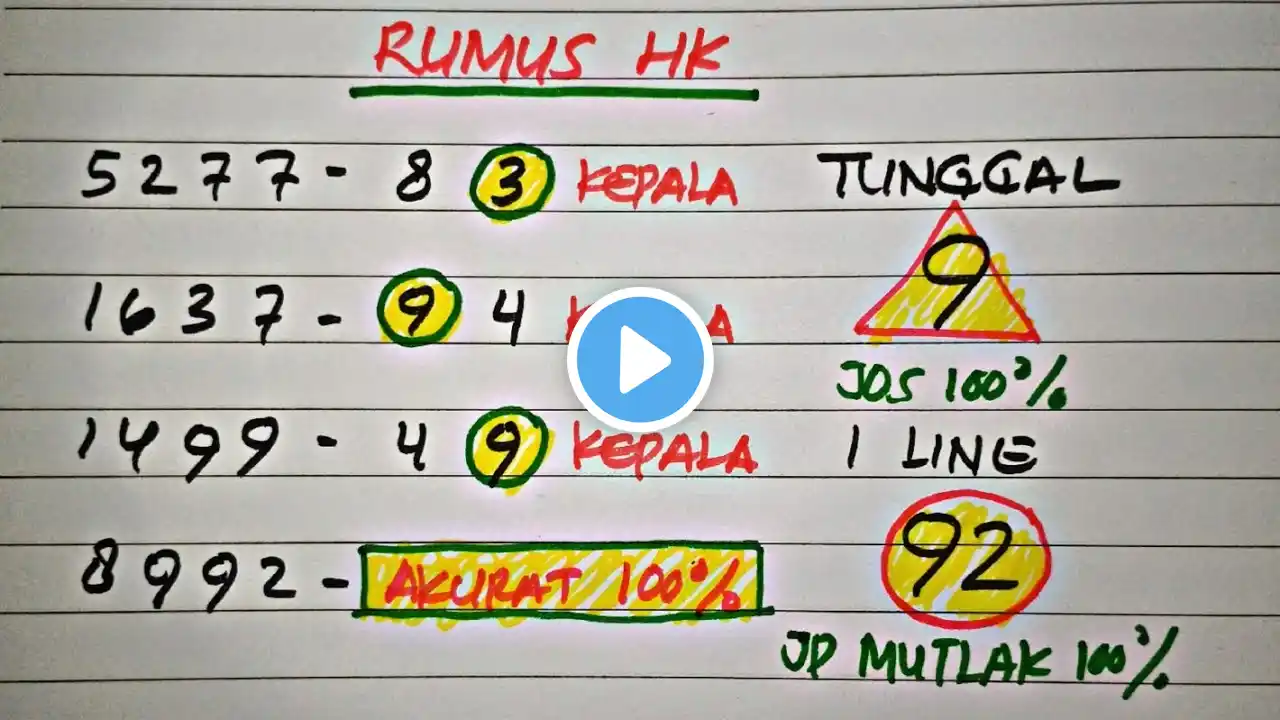 RUMUS HK
5277 - 8 3 KEPALA
1637 - 9 4
1499 - 4 9 KEPALA
8992 - AKURAT 100%
TUNGGAL
9
JOS 100%
1 LINE
92
JP MUTLAK 100%